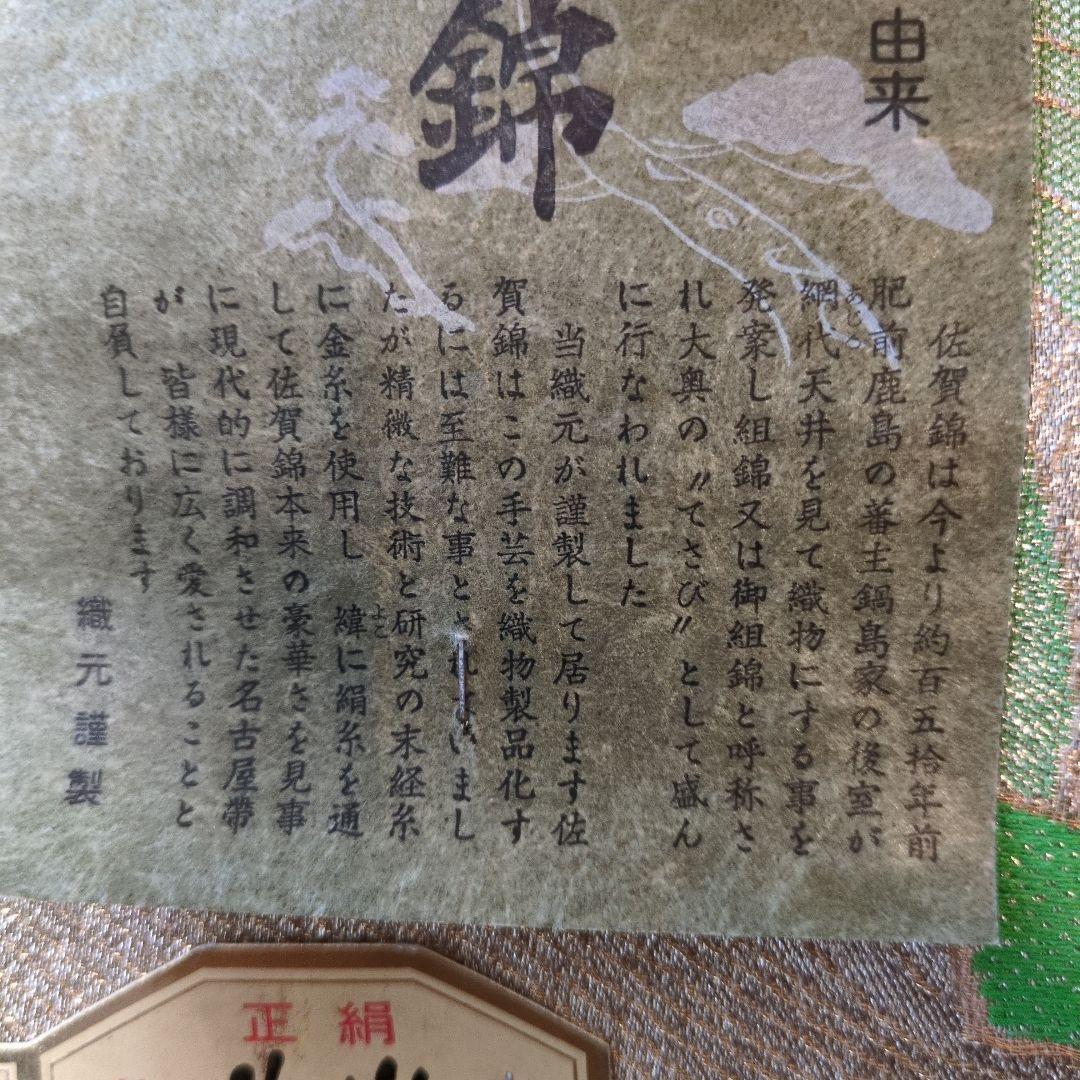 由来
錦
佐賀錦は今より約百五拾年前
肥前鹿島の蕃主鍋島家の後室が
網代天井を見て織物にする事を
あじろ
発案し組錦又は御組錦と呼称さ
れ大奥の〝てさび〟として盛ん
に行なわれました
当織元が謹製して居ります佐
賀錦はこの手芸を織物製品化す
るには至難な事とされていまし
たが精微な技術と研究の末経糸
に金糸を使用し 緯に絹糸を通
よこ
して佐賀錦本来の豪華さを見事
に現代的に調和させた名古屋帯
が 皆様に広く愛されることと
自負しております
織元謹製
正絹